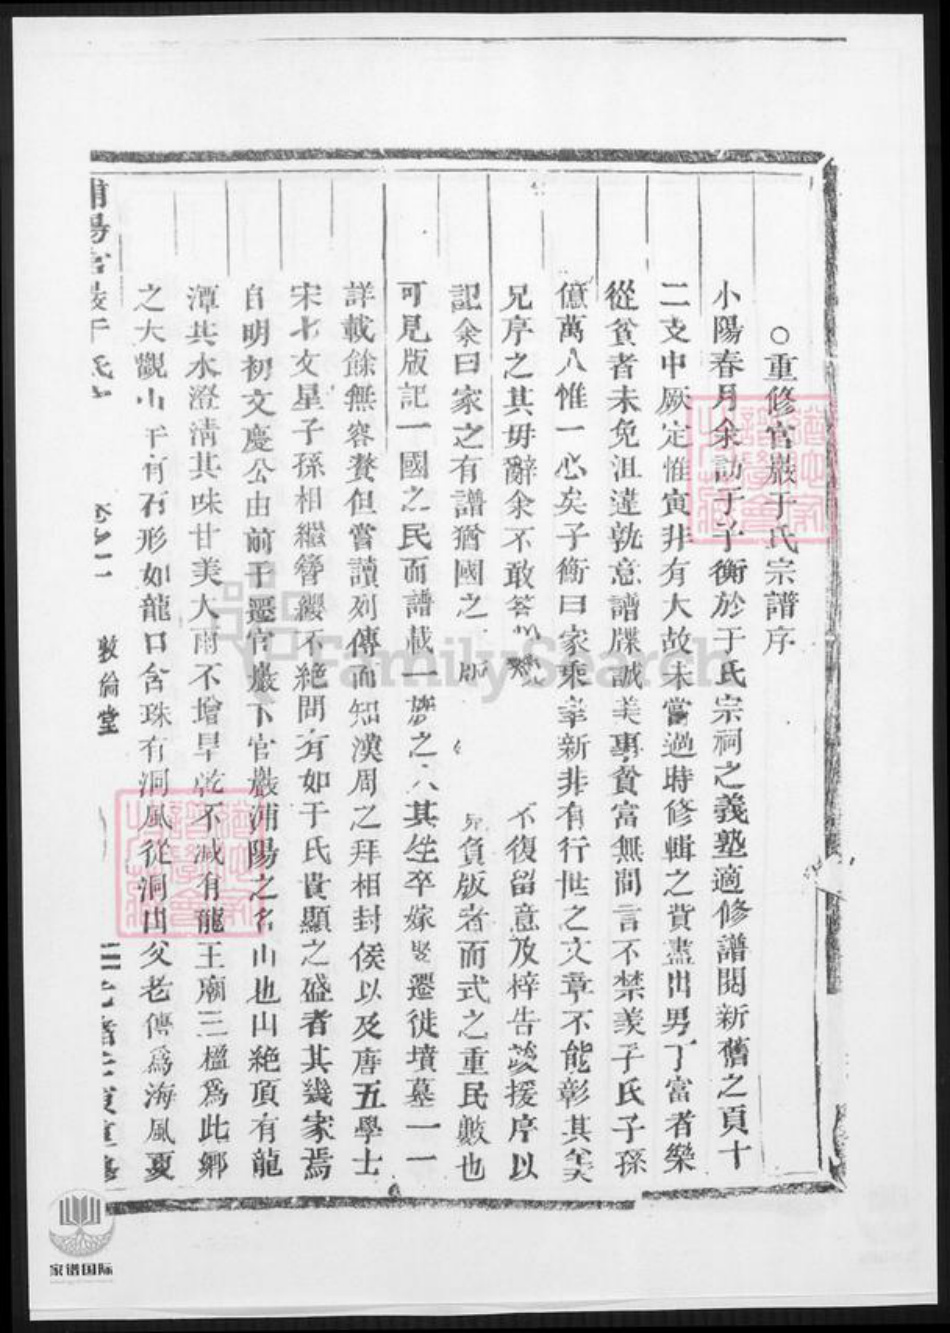 ○重修官巖于氏宗譜序
小陽春月余訪于子衡於于氏宗祠之義塾適修譜閱新舊之頁十
二支中厥定惟寅非有大故未嘗過時修輯之費盡出男丁富者樂
從貧者未免沮違孰意譜牒誠美事貧富無間言不禁羨于氏子孫
億萬人惟一心矣子衡曰家乘幸新非有行世之文章不能彰其美
兄序之其毋辭余不敢答 不復留意及梓告竣援序以
記余曰家之有譜猶國之 版 負版者而式之重民數也
可見版記一國之民而譜載一族之人其生卒嫁娶遷徙墳墓一一
詳載餘無容贅但嘗讀列傳而知漢周之拜相封侯以及唐五學士
宋七文星子孫相繼簪纓不絕問有如于氏貴顯之盛者其幾家焉
自明初文慶公由前于遷官巖下官巖浦陽之名山也山絶頂有龍
潭其水澄清其味甘美大雨不增旱乾不減有龍王廟三楹爲此鄉
之大觀山半有石形如龍口含珠有洞風從洞出父老傳爲海風夏
浦陽官巖于氏 卷之一 敦倫堂
FamilySearch
家谱国际